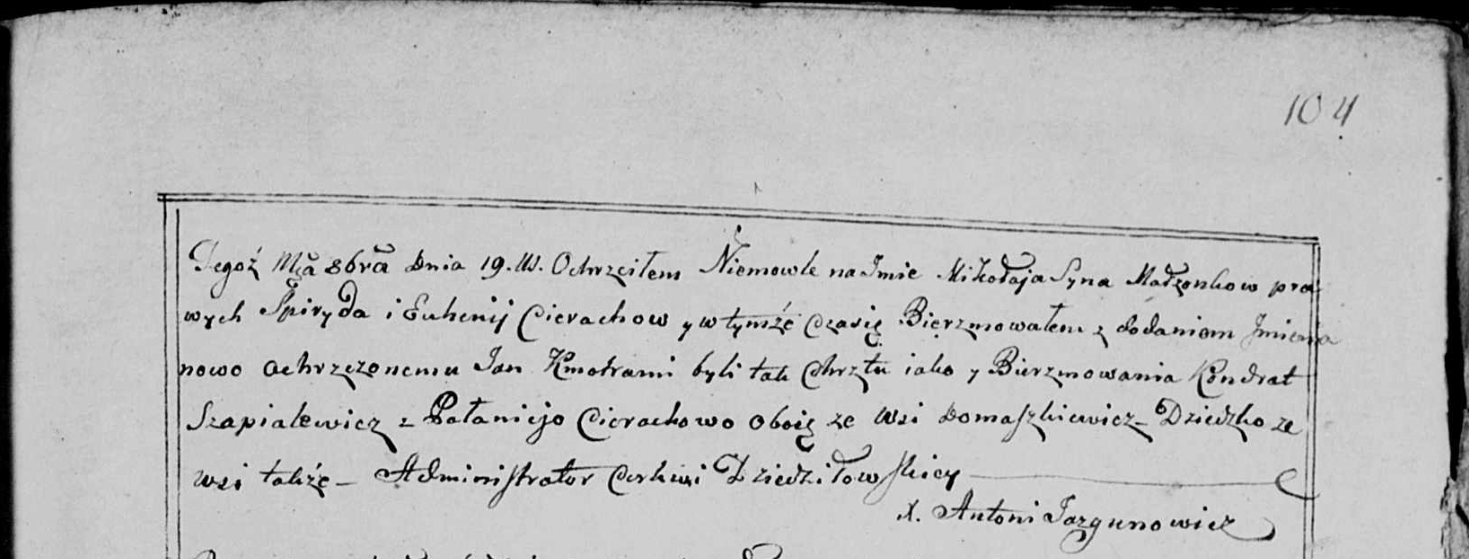 104
Tegoż Mca 8bra Dnia 19. W. Ochrzciłem Niemowle na Jmie Mikołaja Syna Małżonkow pra
wych Spiryda i Euhenij Cierachow y w tymże Czasię Bierzmowałem z dodaniem Jmienia
nowo ochrzczonemu Jan Kmotrami byli tak Chrztu iako y Bierzmowania Kondrat
Szapialewicz z Pałanijo Cierachowo oboię ze Wsi Domaszkiewicz - Dziedzko ze
wsi takżę - Administrator Cerkwi Dziedziłowskiey
x. Antoni Jazgunowicz